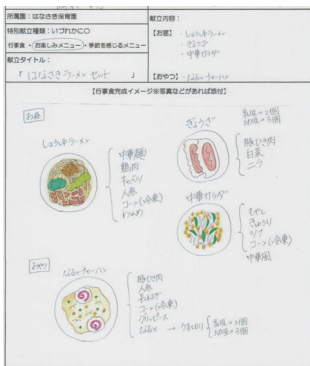 所属園：はなさき保育園
献立内容：
特別献立種類：いづれかに○
行事食・お楽しみメニュー・季節を感じるメニュー
献立タイトル：
「はなさきラーメンセット」
【お昼】・しょうゆラーメン
・ぎょうざ
・中華サラダ
【おやつ】・なるとチャーハン
【行事食完成イメージ※写真などがあれば添付】
お昼
しょうゆラーメン
中華麺
鶏肉
キャベツ
人参
コーン(冷凍)
わかめ
ぎょうざ
乳児→2個
幼児→3個
豚ひき肉
白菜
ニラ
中華サラダ
もやし
きゅうり
ツナ
コーン(冷凍)
おやつ
なるとチャーハン
豚ひき肉
人参
長ねぎ
コーン(冷凍)
グリンピース
なると →